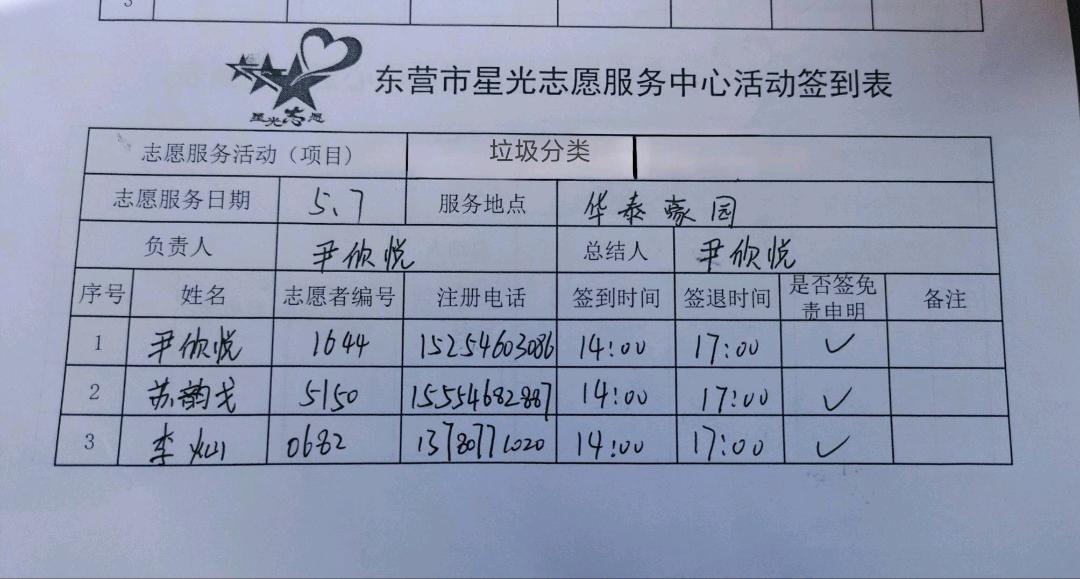 3
星光志愿
东营市星光志愿服务中心活动签到表
志愿服务活动（项目） 垃圾分类
志愿服务日期 5、7 服务地点 华泰豪园
负责人 尹欣悦 总结人 尹欣悦
序号 姓名 志愿者编号 注册电话 签到时间 签退时间 是否签免责申明 备注
1 尹欣悦 1644 15254603086 14:00 17:00 ✓
2 苏韵戈 5150 15554682887 14:00 17:00 ✓
3 李灿 0682 13780771020 14:00 17:00 ✓